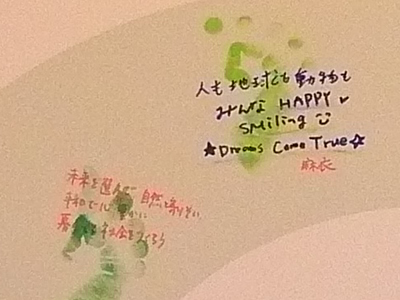 人も地球も動物も
みんな HAPPY
smiling
★Dreams Come True☆
麻衣
未来を選んで 自然と寄りそい
平和で心 かに
暮 社会をつくろう